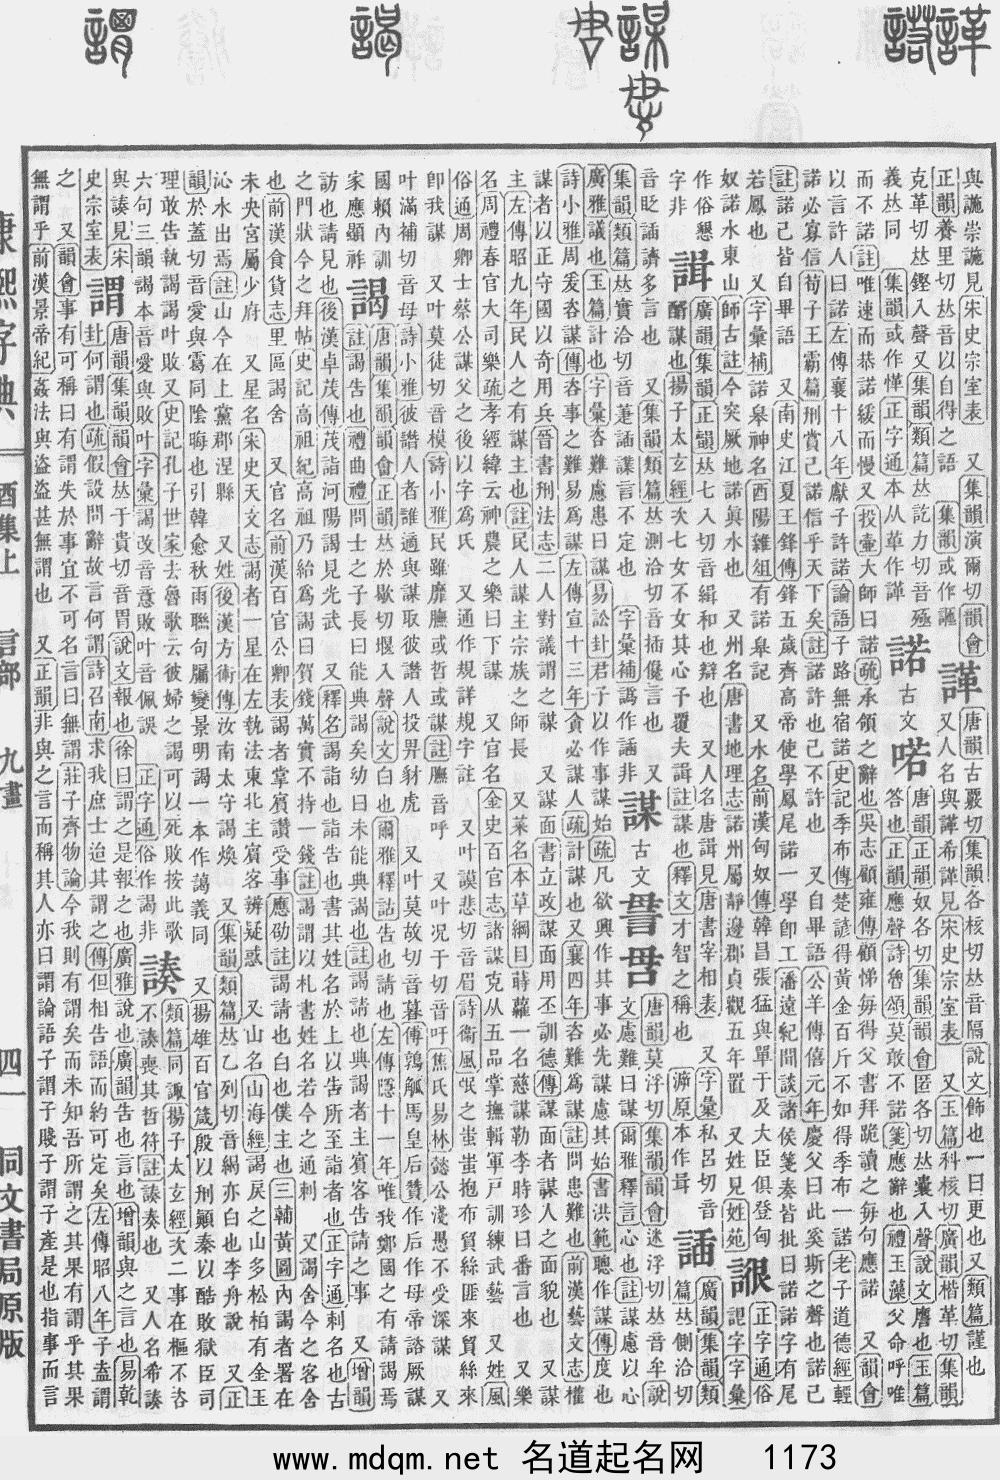 諽 諾 謀 謁 謂
與譓崇譓見宋史宗室表 又集韻演爾切韻會
正韻養里切𠀤音以自得之語 集韻或作謳
諽 唐韻古覈切集韻各核切𠀤音隔說文飾也一曰更也又類篇謹也
又人名與諽希諽見宋史宗室表 又玉篇科核切廣韻楷革切集韻
克革切𠀤鏗入聲又集韻類篇𠀤訖力切音殛
義𠀤同 集韻或作愅正字通本从革作諽
諾 古文 喏 唐韻正韻奴各切集韻韻會匿各切𠀤囊入聲說文譍也玉篇
答也正韻應聲詩魯頌莫敢不諾箋應辭也禮玉藻父命呼唯
而不諾註唯速而恭諾緩而慢 又投壷大師曰諾疏承領之辭也吳志顧雍傳顧悌每得父書拜跪讀之每句應諾 又韻會
以言許人曰諾左傳襄十八年獻子許諾論語子路無宿諾史記季布傳楚諺得黃金百斤不如得季布一諾老子道德經輕
諾必寡信荀子王霸篇刑賞己諾信乎天下矣註諾許也己不許也 又自畢語公羊傳僖元年慶父曰此奚斯之聲也諾己
註諾己皆自畢語 又南史江夏王鋒傳鋒五歲齊高帝使學鳳尾諾一學卽工潘遠紀聞談諸侯箋奏皆批曰諾諾字有尾
若鳳也 又字彙補諾皋神名酉陽雜俎有諾皋記 又水名前漢匈奴傳韓昌張猛與單于及大臣俱登匈
奴諾水東山師古註今突厥地諾眞水也 又州名唐書地理志諾州屬靜邊郡貞觀五年置 又姓見姓苑
詪 正字通俗
記字字彙
作俗懇
字非
諿 廣韻集韻正韻𠀤七入切音緝和也辯也 又人名唐諿見唐書宰相表 又字彙私呂切音
醑謀也揚子太玄經次七女不女其心予覆夫諿註謀也釋文才智之稱也 㴑原本作諿
誧 廣韻集韻類
篇𠀤側洽切
音眨誧譗多言也 又集韻類篇𠀤測洽切音插儳言也 又
集韻類篇𠀤實洽切音萐誧謀言不定也 字彙補譌作誧非
謀 古文 𠰔 𠰎 唐韻莫浮切集韻韻會迷浮切𠀤音牟說
文慮難曰謀爾雅釋言心也註謀慮以心
廣雅議也玉篇計也字彙咨難慮患曰謀易訟卦君子以作事謀始疏凡欲興作其事必先謀慮其始書洪範聰作謀傳度也
詩小雅周爰咨謀傳咨事之難易爲謀左傳宣十三年貪必謀人疏計謀也又襄四年咨難爲謀註問患難也前漢藝文志權
謀者以正守國以奇用兵晉書刑法志二人對議謂之謀 又謀面書立政謀面用丕訓德傳謀面者謀人之面貌也 又謀
主左傳昭九年民人之有謀主也註民人謀主宗族之師長 又菜名本草綱目蒔蘿一名慈謀勒李時珍曰番言也 又樂
名周禮春官大司樂疏孝經緯云神農之樂曰下謀 又官名金史百官志諸謀克从五品掌撫輯軍戸訓練武藝 又姓風
俗通周卿士蔡公謀父之後以字爲氏 又通作規詳規字註 又叶謨悲切音眉詩衞風氓之蚩蚩抱布貿絲匪來貿絲來
卽我謀 又叶莫徒切音模詩小雅民雖靡膴或哲或謀註膴音呼 又叶况于切音吁焦氏易林懿公淺愚不受深謀 又
叶滿補切音母詩小雅彼譖人者誰適與謀取彼譖人投畀豺虎 又叶莫故切音暮傳鶉觚馬皇后贊作后作母帝諮厥謀
國賴內訓
家應顯祚
謁 唐韻集韻韻會正韻𠀤於歇切堰入聲說文白也爾雅釋詁告也請也左傳隱十一年唯我鄭國之有請謁焉
註謁告也禮曲禮問士之子長曰能典謁矣幼曰未能典謁也註謁請也典謁者主賓客告請之事 又增韻
訪也請見也後漢卓茂傳茂詣河陽謁見光武 又釋名謁詣也詣告也書其姓名於上以告所至詣者也正字通剌名也古
之門狀今之拜帖史記高祖紀高祖乃紿爲謁曰賀錢萬實不持一錢註謁謂以札書姓名若今之通刺 又謁舍今之客舍
也前漢食貨志里區謁舍 又官名前漢百官公卿表謁者掌賓讚受事應劭註謁請也白也僕主也三輔黃圖內謁者署在
未央宮屬少府 又星名宋史天文志謁者一星在左執法東北主賓客辨疑惑 又山名山海經謁戾之山多松柏有金玉
沁水出焉註山今在上黨郡涅縣 又姓後漢方術傳汝南太守謁煥 又集韻類篇𠀤乙列切音䋵亦白也李舟說 又正
韻於蓋切音愛與靄同陰晦也引韓愈秋雨聯句屬變景明謁一本作藹義同 又揚雄百官箴殷以刑顚秦以酷敗獄臣司
理敢告執謁謁叶敗又史記孔子世家去魯歌云彼婦之謁可以死敗按此歌
六句三韻謁本音愛與敗叶字彙謁改音意敗叶音佩誤 正字通俗作謁非
諫 類篇同諏揚子太玄經次二事在樞不咨
不諫喪其哲符註諫奏也 又人名希諫
與諫見宋
史宗室表
謂 唐韻集韻韻會𠀤于貴切音胃說文報也徐曰謂之是報之也廣雅說也廣韻告也言也增韻與之言也易乾
卦何謂也疏假設問辭故言何謂詩召南求我庶士迨其謂之傳但相告語而約可定矣左傳昭八年子盍謂
之 又韻會事有可稱曰有謂失於事宜不可名言曰無謂莊子齊物論今我則有謂矣而未知吾所謂之其果有謂乎其果
無謂乎前漢景帝紀姦法與盜盜甚無謂也 又正韻非與之言而稱其人亦曰謂論語子謂子賤子謂子產是也指事而言
康熙字典 酉集上 言部 九畫 四一 同文書局原版
www.mdqm.net 名道起名网 1173